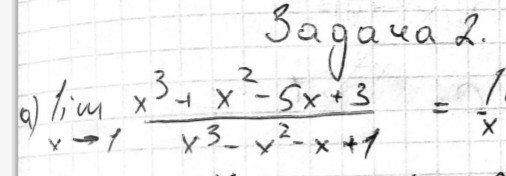 Задача 2.
а) lim x→1 (x³ + x² - 5x + 3)/(x³ - x² - x + 1) =